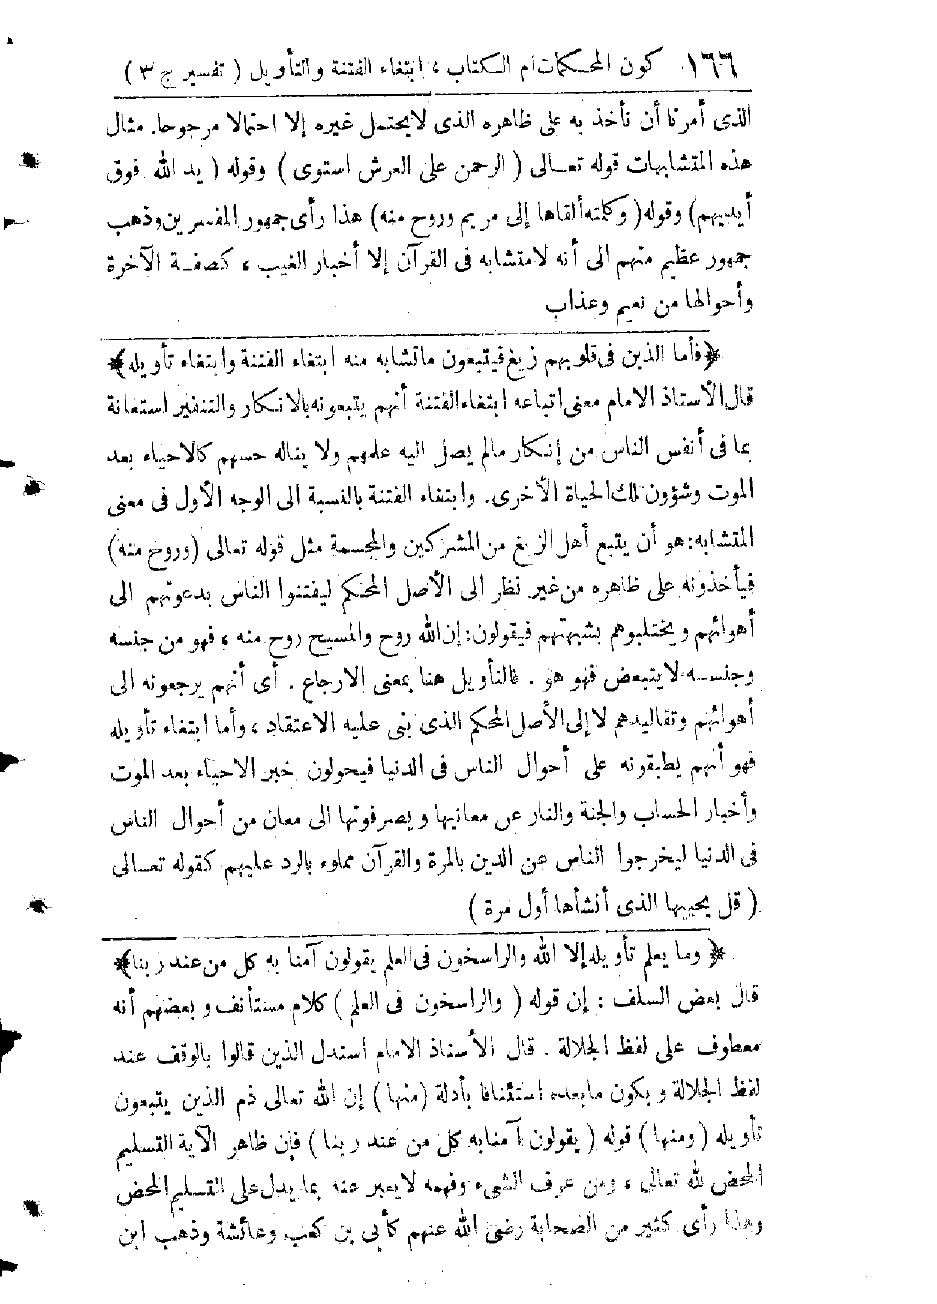 ١٦٦ كون المحكمات ام الكتاب ، ابتغاء الفتنة والتأويل ( تفسير ج ٣ )
الذى أمرنا أن نأخذ به على ظاهره الذى لايحتمل غيره إلا احتمالا مرجوحا. مثال
هذه المتشابهات قوله تعالى ( الرحمن على العرش استوى ) وقوله ( يد الله فوق
أيديهم) وقوله( وكلمته ألقاها إلى مريم وروح منه) هذا رأى جمهور المفسرين وذهب
جمهور عظيم منهم الى أنه لامتشابه فى القرآن إلا أخبار الغيب ، كصفة الآخرة
وأحوالها من نعيم وعذاب
﴿فأما الذين فى قلوبهم زيغ فيتبعون ماتشابه منه ابتغاء الفتنة وابتغاء تأويله﴾
قال الأستاذ الامام معنى اتباعه ابتغاء الفتنة أنهم يتبعونه بالانكار والتنفير استعانة
بما فى أنفس الناس من إنكار مالم يصل اليه علمهم ولا يناله حسهم كالاحياء بعد
الموت وشؤون تلك الحياة الأخرى. وابتغاء الفتنة بالنسبة الى الوجه الأول فى معنى
المتشابه: هو أن يتبع أهل الزيغ من المشركين والمجسمة مثل قوله تعالى (وروح منه)
فيأخذونه على ظاهره من غير نظر الى الأصل المحكم ليفتنوا الناس بدعوتهم الى
أهوائهم ويختلبوهم بشبهتهم فيقولون: إن الله روح والمسيح روح منه ، فهو من جنسه
وجنسه لايتبعض فهو هو . فالتأويل هنا بمعنى الارجاع . أى أنهم يرجعونه الى
أهوائهم وتقاليدهم لا إلى الأصل المحكم الذى بنى عليه الاعتقاد ، وأما ابتغاء تأويله
فهو أنهم يطبقونه على أحوال الناس فى الدنيا فيحولون خبر الاحياء بعد الموت
وأخبار الحساب والجنة والنار عن معانيها ويصرفونها الى معان من أحوال الناس
فى الدنيا ليخرجوا الناس عن الدين بالمرة والقرآن مملوء بالرد عليهم كقوله تعالى
( قل يحييها الذى أنشأها أول مرة )
﴿ وما يعلم تأويله إلا الله والراسخون فى العلم يقولون آمنا به كل من عند ربنا﴾
قال بعض السلف : إن قوله ( والراسخون فى العلم ) كلام مستأنف وبعضهم أنه
معطوف على لفظ الجلالة . قال الأستاذ الامام استدل الذين قالوا بالوقف عند
لفظ الجلالة وبكون مابعده استئنافا بأدلة (منها) إن الله تعالى ذم الذين يتبعون
تأويله ( ومنها ) قوله ( يقولون آمنا به كل من عند ربنا ) فإن ظاهر الآية التسليم
المحض لله تعالى ، ومن عرف الشىء وفهمه لايعبر عنه بما يدل على التسليم المحض
وهذا رأى كثير من الصحابة رضى الله عنهم كأبى بن كعب وعائشة وذهب ابن